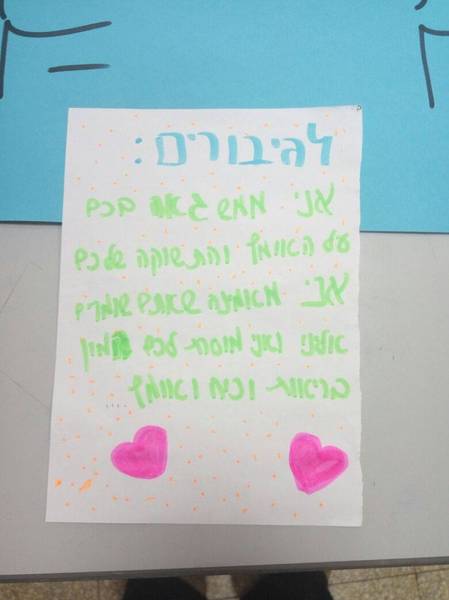 לגיבורים:
אני ממש גאה בכם
על האומץ והתשוקה שלכם
אני מאמינה שאתם שומרים
ואני מוסרת לכם המון
בריאות וכוח ואומץ...